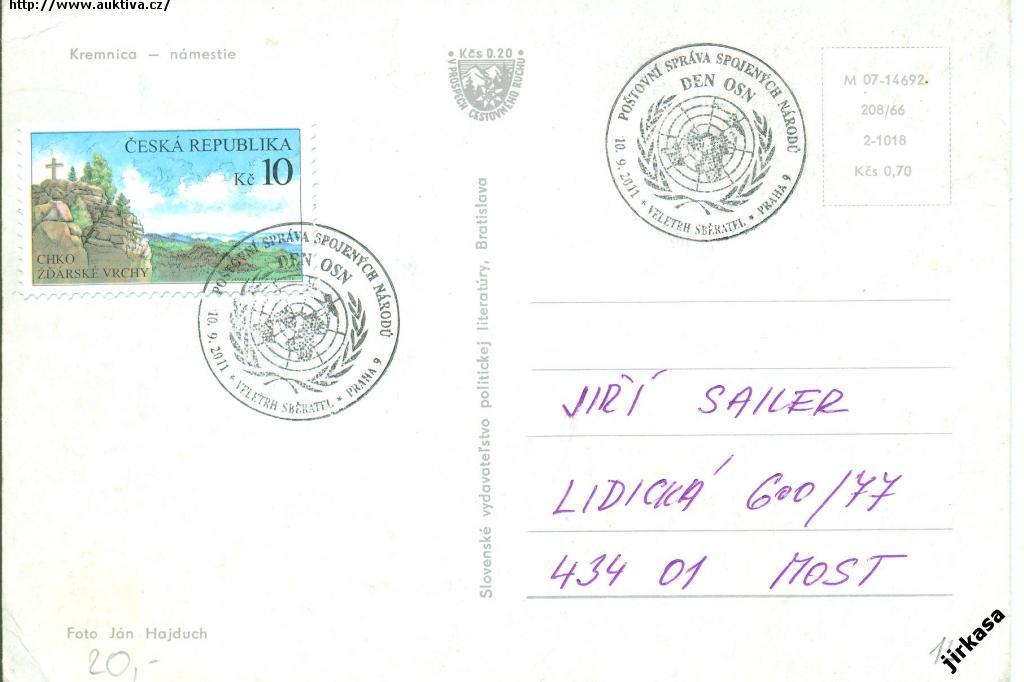 http://www.auktiva.cz/
Kremnica – námestie
Kčs 0.20
V PROSPECH CESTOVNÉHO RUCHU
POŠTOVNÍ SPRÁVA SPOJENÝCH NÁRODŮ
DEN OSN
10.9.2011 * VELETRH SBĚRATEL * PRAHA 9
M 07-14692
208/66
2-1018
Kčs 0,70
ČESKÁ REPUBLIKA
Kč 10
CHKO
ŽĎÁRSKÉ VRCHY
POŠTOVNÍ SPRÁVA SPOJENÝCH NÁRODŮ
DEN OSN
10.9.2011 * VELETRH SBĚRATEL * PRAHA 9
Slovenské vydavateľstvo politickej literatúry, Bratislava
JIŘÍ SAILER
LIDICKÁ 600/77
434 01 MOST
Foto Ján Hajduch
20,-
jirkasa